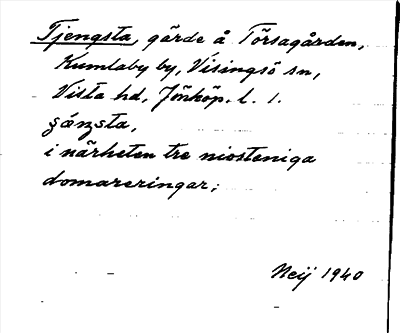 Tjengsta, gärde å Törsagården,
Kumlaby by, Visingsö sn,
Vista hd, Jönköp. l. 1.
šäŋsta,
i närheten tre niosteniga
domareringar;
Neij 1940